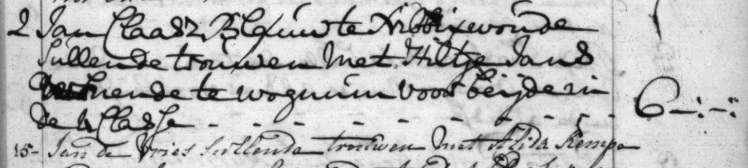 2 Jan Claasz Blaauw te Nibbixwoude
sullende trouwen met Hiltje Jans
Woonende te wognum voor beijde in
de 4 Classe - - - - - - - - - - 6-:-:
15- Jan de Vries sullende trouwen met Alida Kempe